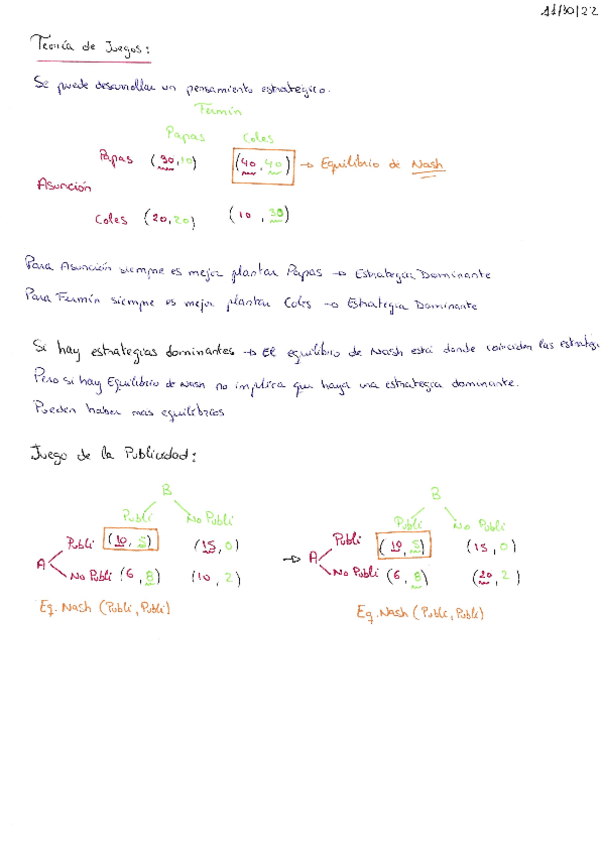 11/30/22
Teoría de Juegos:
Se puede desarrollar un pensamiento estratégico.
Fermín
Papas Coles
Papas (30,10) (40,40) → Equilibrio de Nash
Asunción
Coles (20,20) (10,30)
Para Asunción siempre es mejor plantar Papas → Estrategia Dominante
Para Fermín siempre es mejor plantar Coles → Estrategia Dominante
Si hay estrategias dominantes → El equilibrio de Nash está donde coinciden las estrateg
Pero si hay Equilibrio de Nash no implica que haya una estrategia dominante.
Pueden haber mas equilibrios
Juego de la Publicidad:
B B
Publi No Publi Publi No Publi
Publi (10,5) (15,0) → Publi (10,5) (15,0)
A A
No Publi (6,8) (10,2) No Publi (6,8) (20,2)
Eq. Nash (Publi, Publi) Eq. Nash (Publi, Publi)